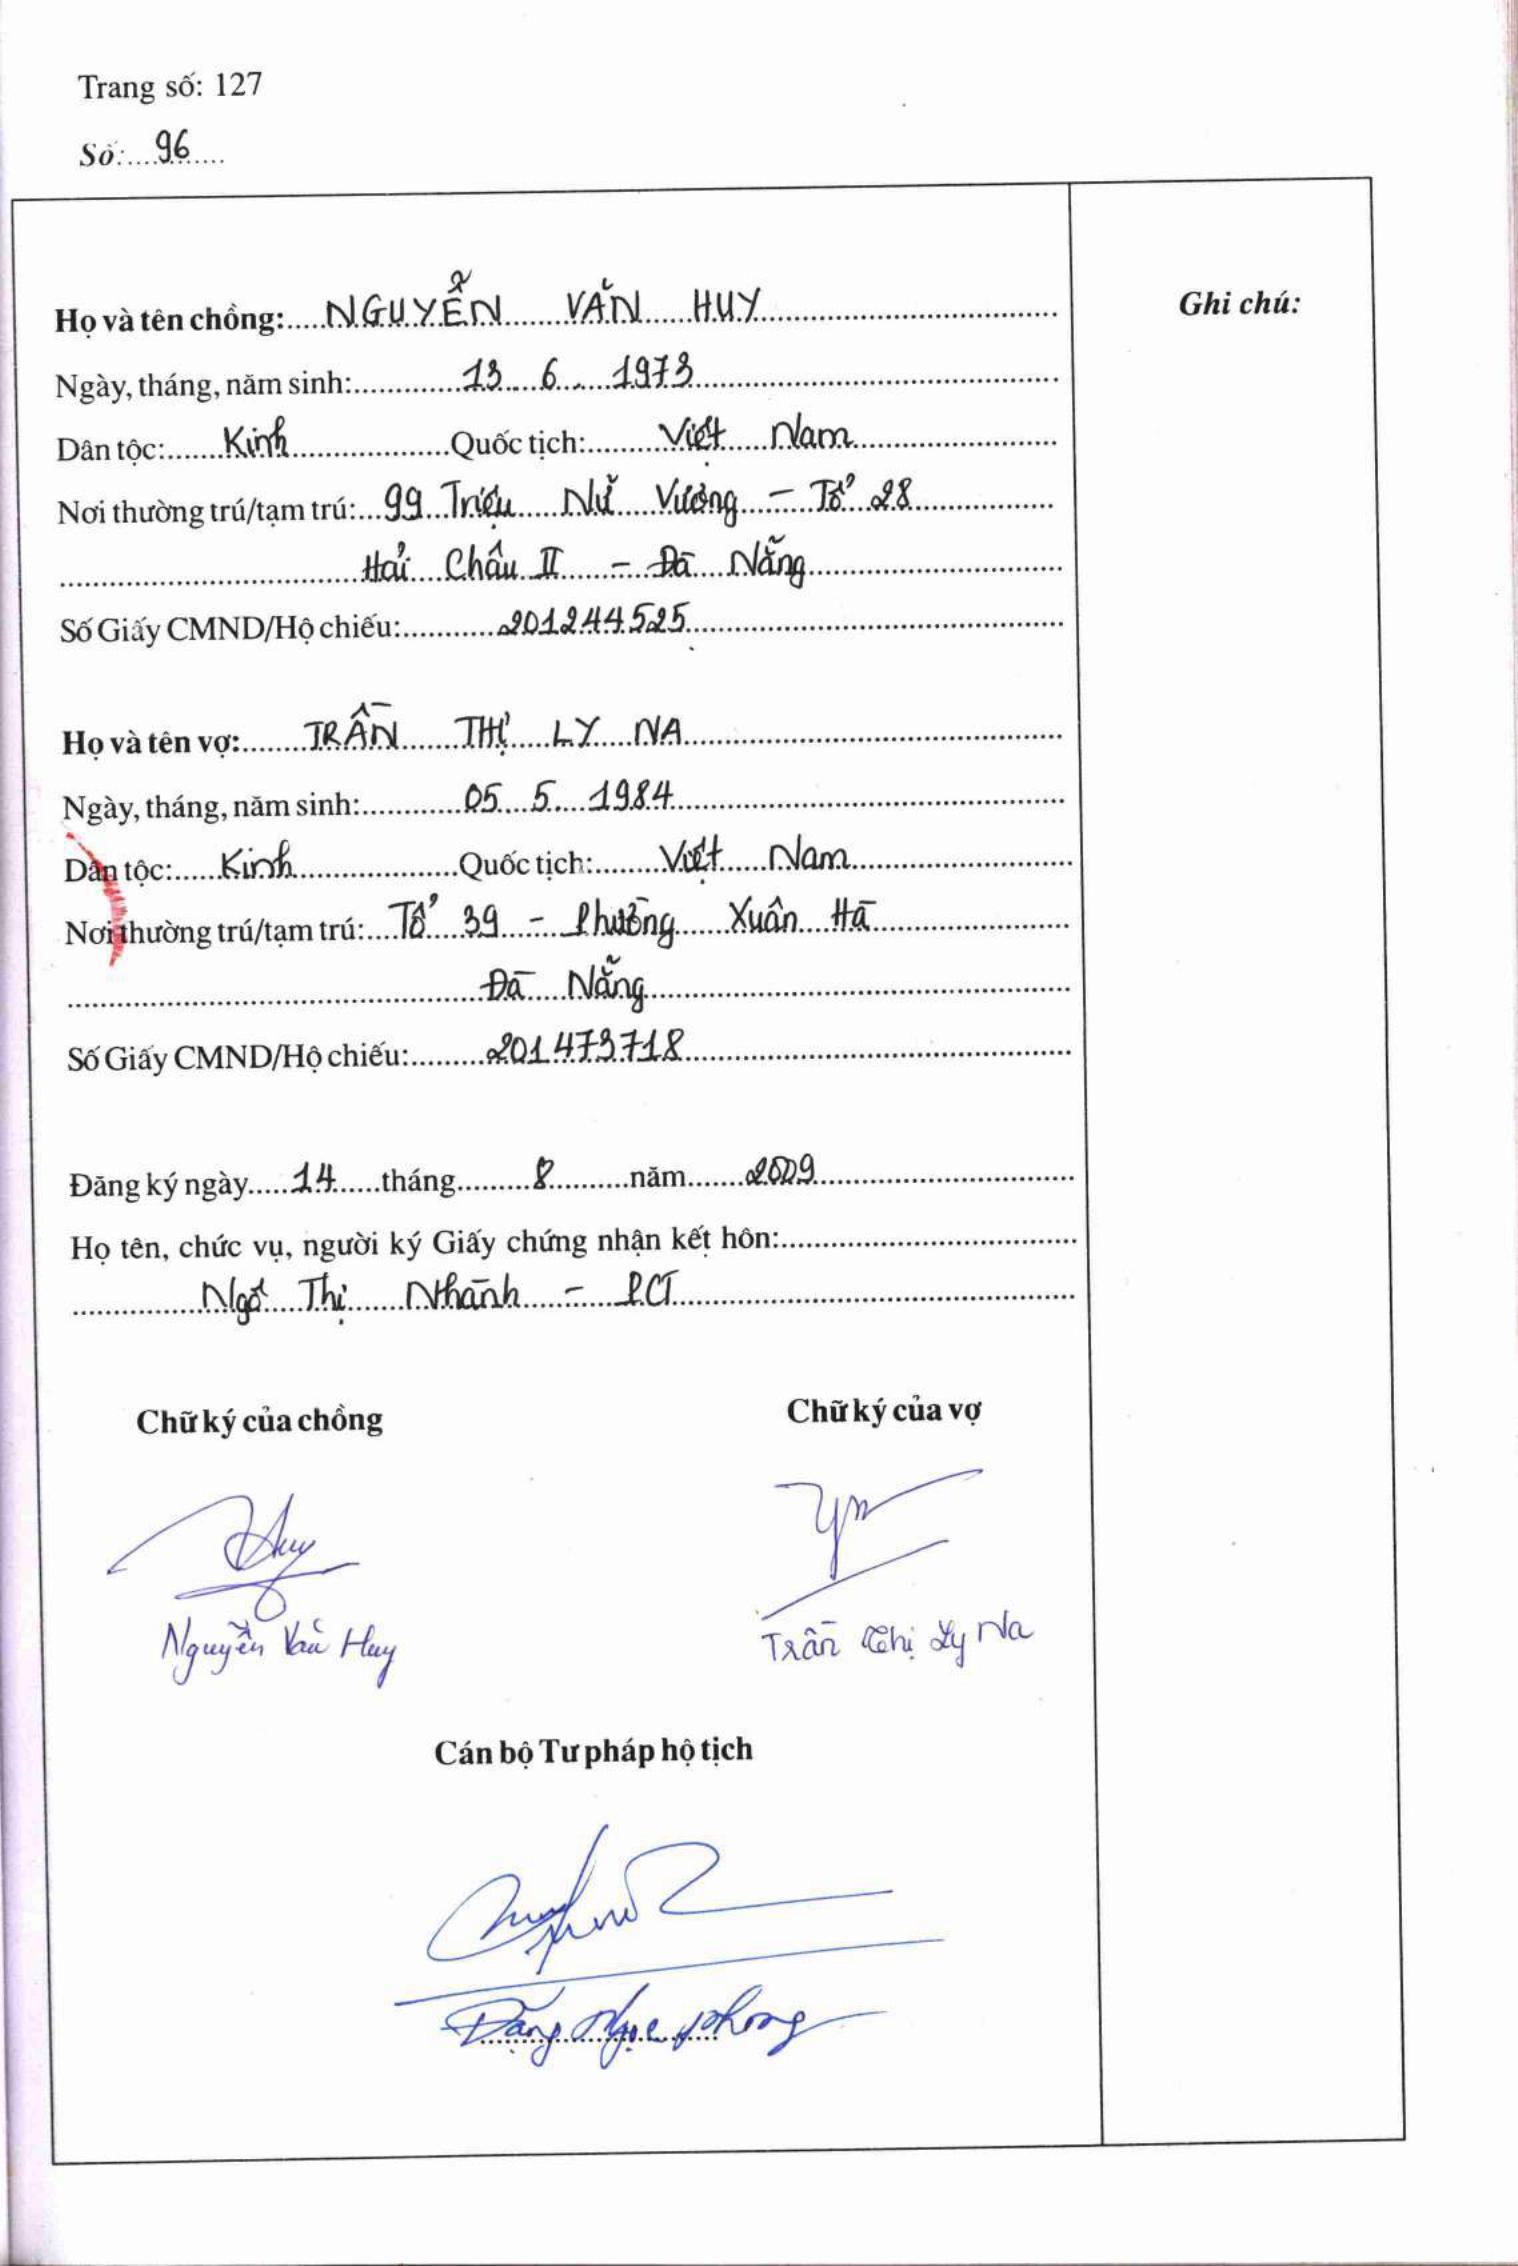 Trang số: 127
Số: 96
Họ và tên chồng: NGUYỄN VĂN HUY
Ghi chú:
Ngày, tháng, năm sinh: 13 6 1973
Dân tộc: Kinh Quốc tịch: Việt Nam
Nơi thường trú/tạm trú: 99 Triệu Nữ Vương - Tổ 28
Hải Châu II - Đà Nẵng
Số Giấy CMND/Hộ chiếu: 201244525
Họ và tên vợ: TRẦN THỊ LY NA
Ngày, tháng, năm sinh: 05 5 1984
Dân tộc: Kinh Quốc tịch: Việt Nam
Nơi thường trú/tạm trú: Tổ 39 - Phường Xuân Hà
Đà Nẵng
Số Giấy CMND/Hộ chiếu: 201473718
Đăng ký ngày 14 tháng 8 năm 2009
Họ tên, chức vụ, người ký Giấy chứng nhận kết hôn:
Ngô Thị Nhành - PCT
Chữ ký của chồng Chữ ký của vợ
Huy
Nguyễn Văn Huy Trần Thị Ly Na
Cán bộ Tư pháp hộ tịch
Đặng Ngọc Phong